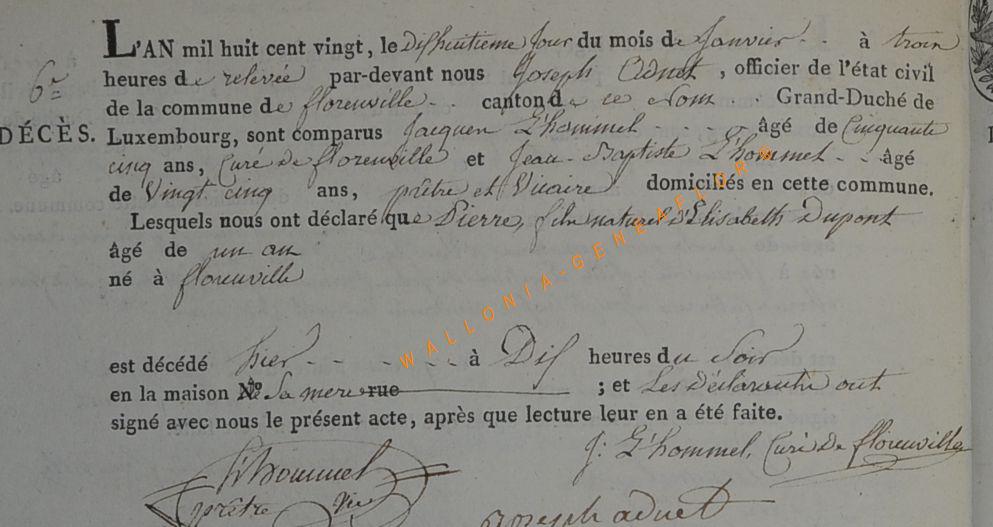 L'AN mil huit cent vingt, le Dishuitieme Jour du mois de Janvier à trois
6e heures de relevée par-devant nous Joseph Adnet, officier de l'état civil
de la commune de florenville canton de ce Nom Grand-Duché de
DÉCÈS. Luxembourg, sont comparus Jacques L'hommel âgé de Cinquante
cinq ans, Curé de florenville et Jean-Baptiste L'hommel âgé
de Vingt cinq ans, prêtre et Vicaire domiciliés en cette commune.
Lesquels nous ont déclaré que Pierre, fils naturel d'Elisabeth Dupont
âgé de un an
né à florenville
est décédé hier à Dis heures du Soir
en la maison No de Sa mere rue ; et Les Déclarants ont
signé avec nous le présent acte, après que lecture leur en a été faite.
J: L'hommel, Curé de florenville
L'hommel
prêtre Vic
joseph adnet
WALLONIA-GENEAPLOR®